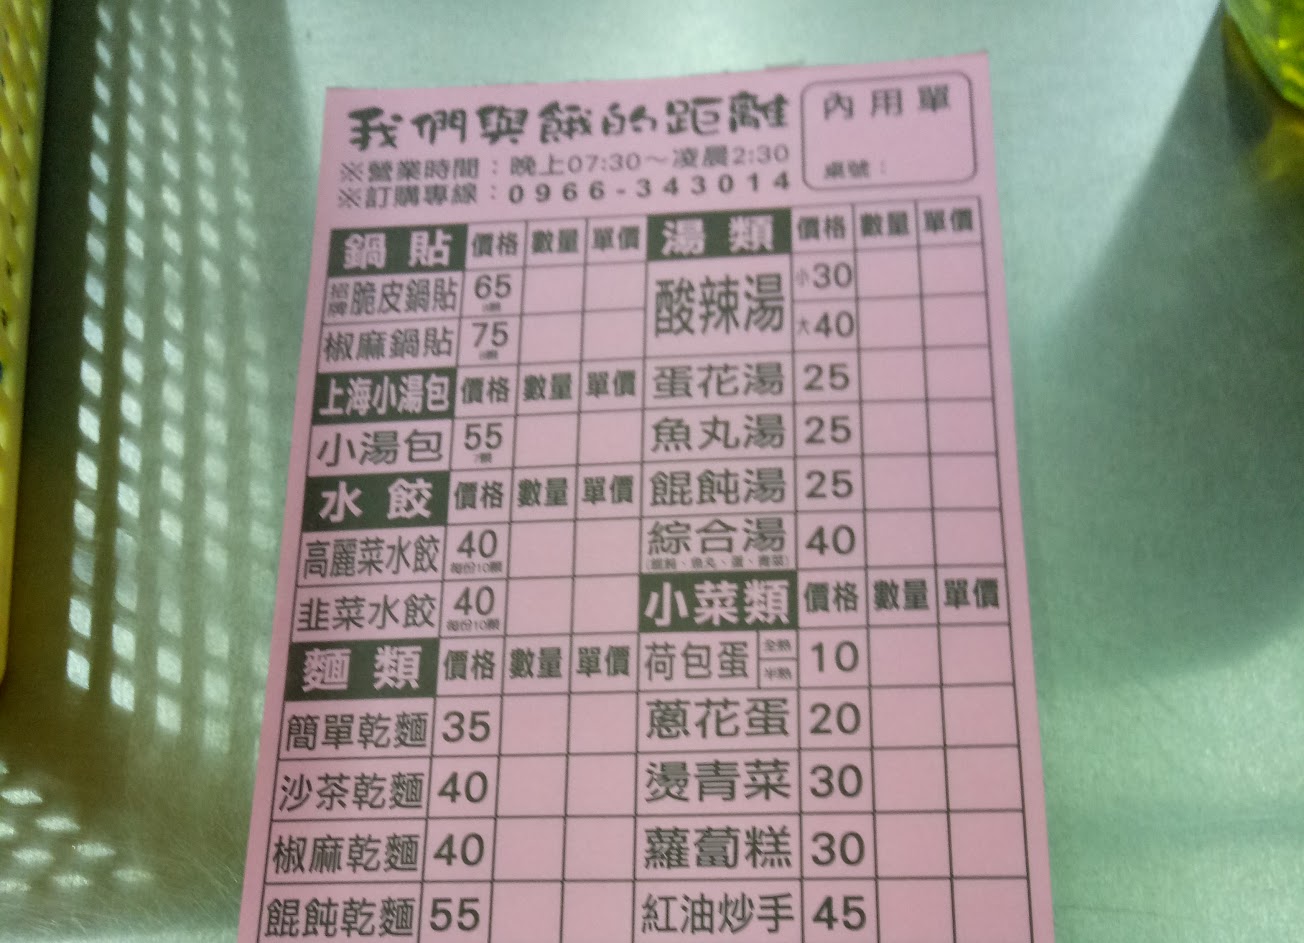 我們與餓的距離
內用單
桌號：
※營業時間：晚上07:30～凌晨2:30
※訂購專線：0966-343014
鍋貼 價格 數量 單價
招牌脆皮鍋貼 65
椒麻鍋貼 75
上海小湯包 價格 數量 單價
小湯包 55
水餃 價格 數量 單價
高麗菜水餃 40 每份10顆
韭菜水餃 40 每份10顆
麵類 價格 數量 單價
簡單乾麵 35
沙茶乾麵 40
椒麻乾麵 40
餛飩乾麵 55
湯類 價格 數量 單價
酸辣湯 小30
大40
蛋花湯 25
魚丸湯 25
餛飩湯 25
綜合湯 40
(餛飩、魚丸、蛋、青菜)
小菜類 價格 數量 單價
荷包蛋 全熟 半熟 10
蔥花蛋 20
燙青菜 30
蘿蔔糕 30
紅油炒手 45